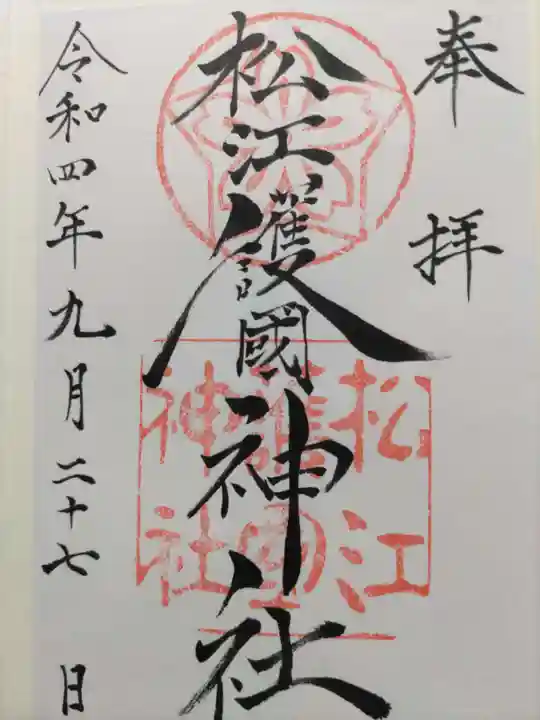 奉拝
松江護國神社
松江
護國
神社
令和四年九月二十七日